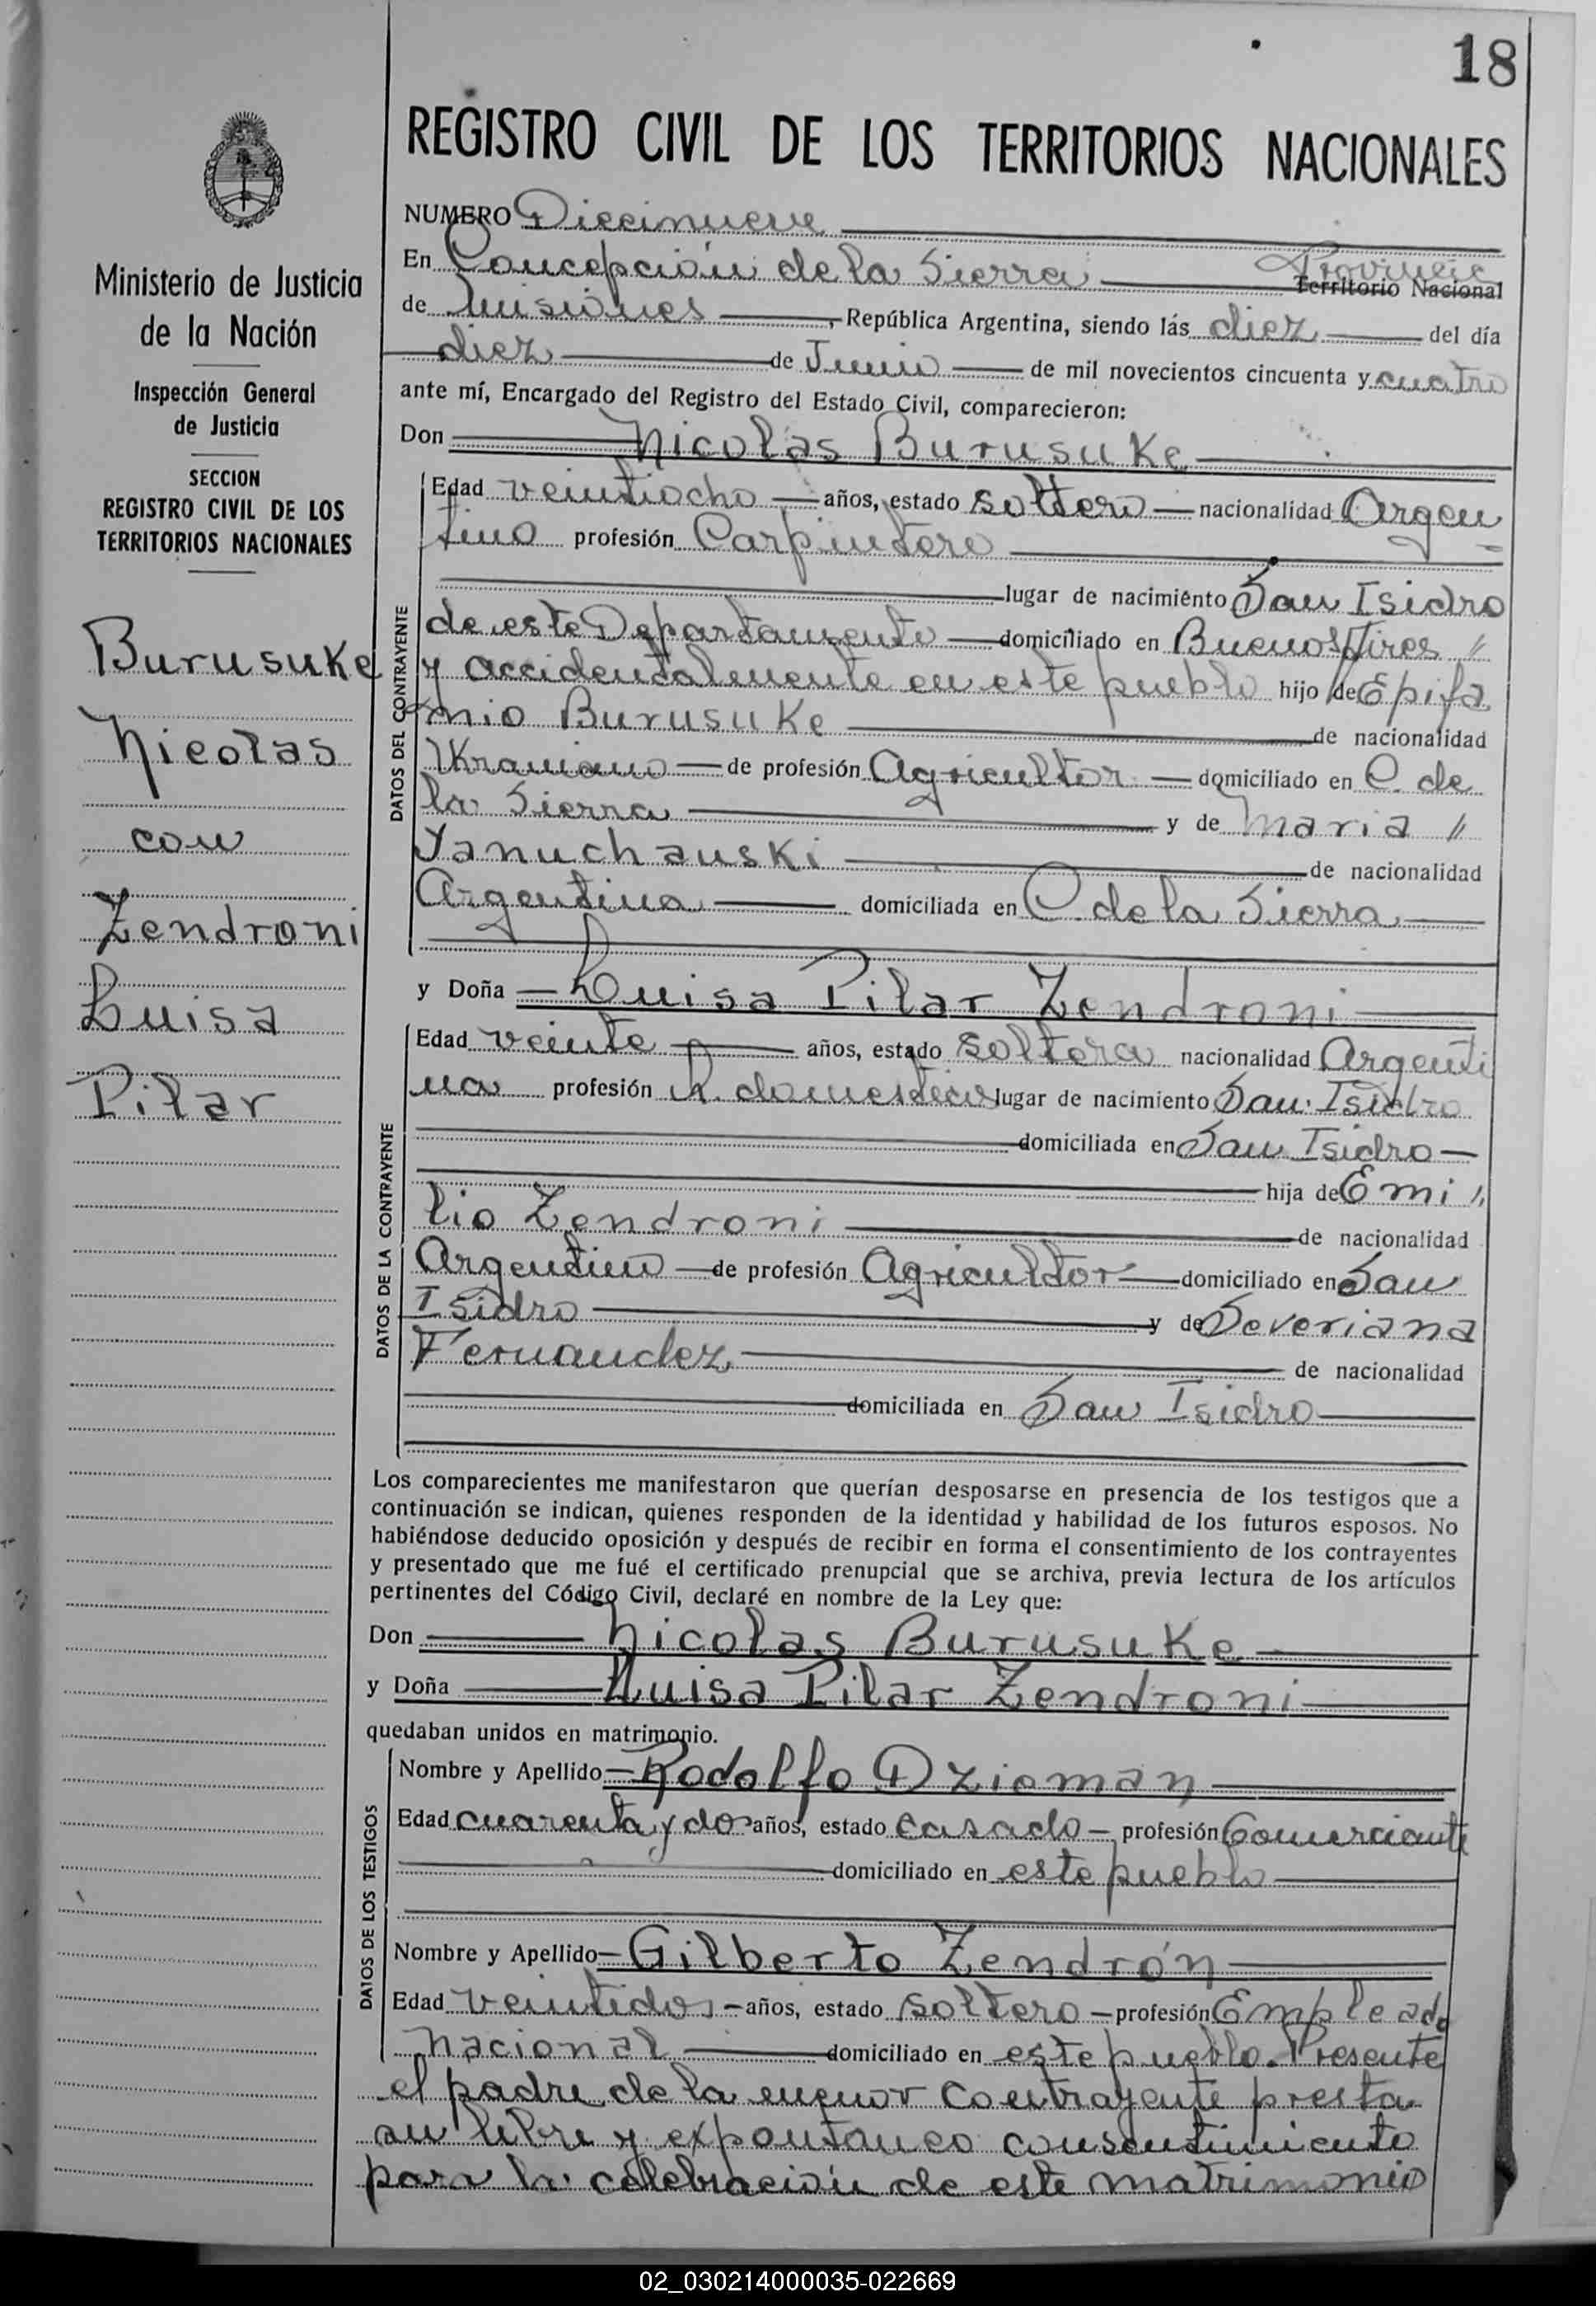 18
REGISTRO CIVIL DE LOS TERRITORIOS NACIONALES
Ministerio de Justicia
de la Nación
Inspección General
de Justicia
SECCION
REGISTRO CIVIL DE LOS
TERRITORIOS NACIONALES
Burusuke
Nicolas
con
Zendroni
Luisa
Pilar
NUMERO Diecinueve
En Concepción de la Sierra Provincia Territorio Nacional
de Misiones, República Argentina, siendo lás diez del día
diez de Junio de mil novecientos cincuenta y cuatro
ante mí, Encargado del Registro del Estado Civil, comparecieron:
Don Nicolás Burusuke
DATOS DEL CONTRAYENTE
Edad veintiocho años, estado soltero nacionalidad Argen
tino profesión Carpintero
lugar de nacimiento San Isidro
de este Departamento domiciliado en Buenos Aires "
y accidentalmente en este pueblo hijo de Epifa
nio Burusuke de nacionalidad
Ukraniano de profesión Agricultor domiciliado en C. de
la Sierra y de Maria "
Yanuchauski de nacionalidad
Argentina domiciliada en C. de la Sierra
y Doña Luisa Pilar Zendroni
DATOS DE LA CONTRAYENTE
Edad veinte años, estado soltera nacionalidad Argenti
na profesión Q. domesticos lugar de nacimiento San Isidro
domiciliada en San Isidro
hija de Emi "
lio Zendroni de nacionalidad
Argentino de profesión Agricultor domiciliado en San
Isidro y de Severiana
Fernandez de nacionalidad
domiciliada en San Isidro
Los comparecientes me manifestaron que querían desposarse en presencia de los testigos que a
continuación se indican, quienes responden de la identidad y habilidad de los futuros esposos. No
habiéndose deducido oposición y después de recibir en forma el consentimiento de los contrayentes
y presentado que me fué el certificado prenupcial que se archiva, previa lectura de los artículos
pertinentes del Código Civil, declaré en nombre de la Ley que:
Don Nicolas Burusuke
y Doña Luisa Pilar Zendroni
quedaban unidos en matrimonio.
DATOS DE LOS TESTIGOS
Nombre y Apellido Rodolfo Dzioman
Edad cuarenta y dos años, estado casado profesión Comerciante
domiciliado en este pueblo
Nombre y Apellido Gilberto Zendrón
Edad veintidos años, estado soltero profesión Empleado
Nacional domiciliado en este pueblo. Presente
el padre de la menor contrayente presta
su libre y expontaneo consentimiento
para la celebración de este matrimonio
02_030214000035-022669